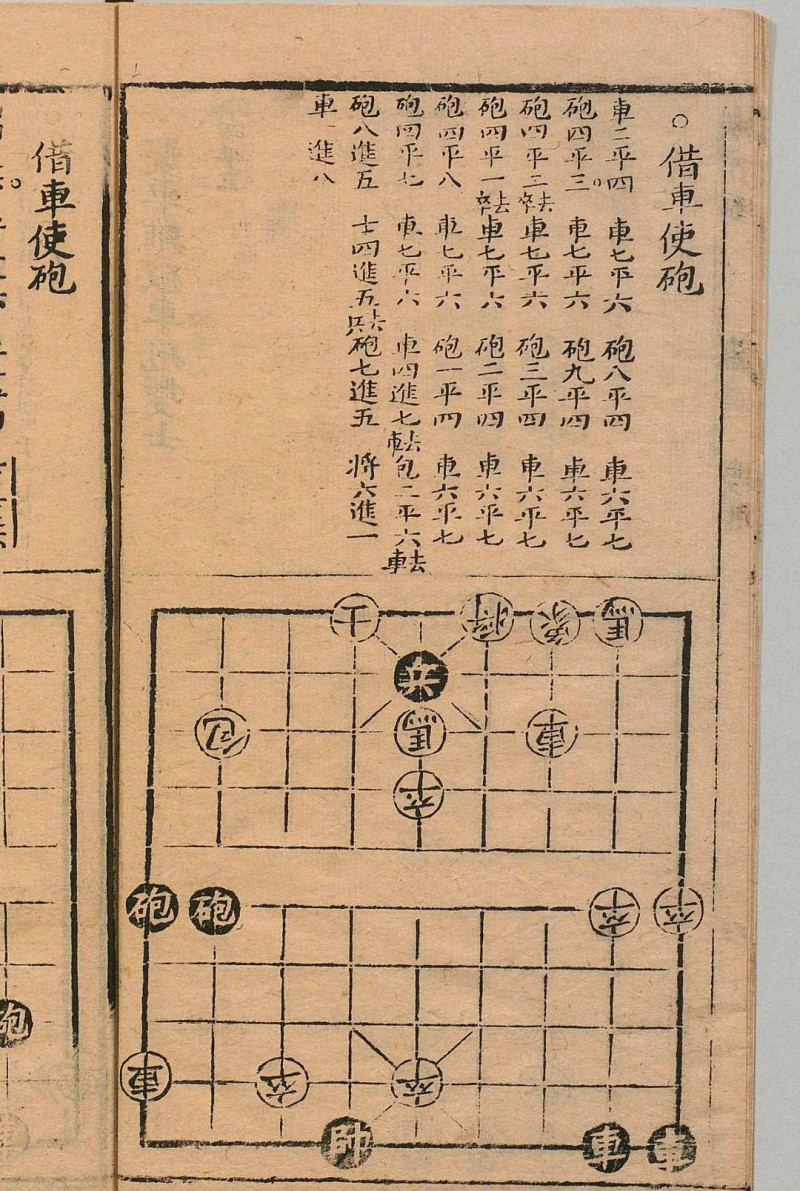 ○借車使砲
車二平四 車七平六 砲八平四 車六平七
砲四平三 車七平六 砲九平四 車六平七
砲四平二去卒 車七平六 砲三平四 車六平七
砲四平一去卒 車七平六 砲二平四 車六平七
砲四平八 車七平六 砲一平四 車六平七
砲四平七 車七平六 車四進七去車 包二平六去車
砲八進五 士四進五去兵 砲七進五 将六進一
車一進八
士 将 象 馬
兵
包 馬 車
卒
砲 砲 卒 卒
車 卒 卒
帥 車 車
借車使砲
砲